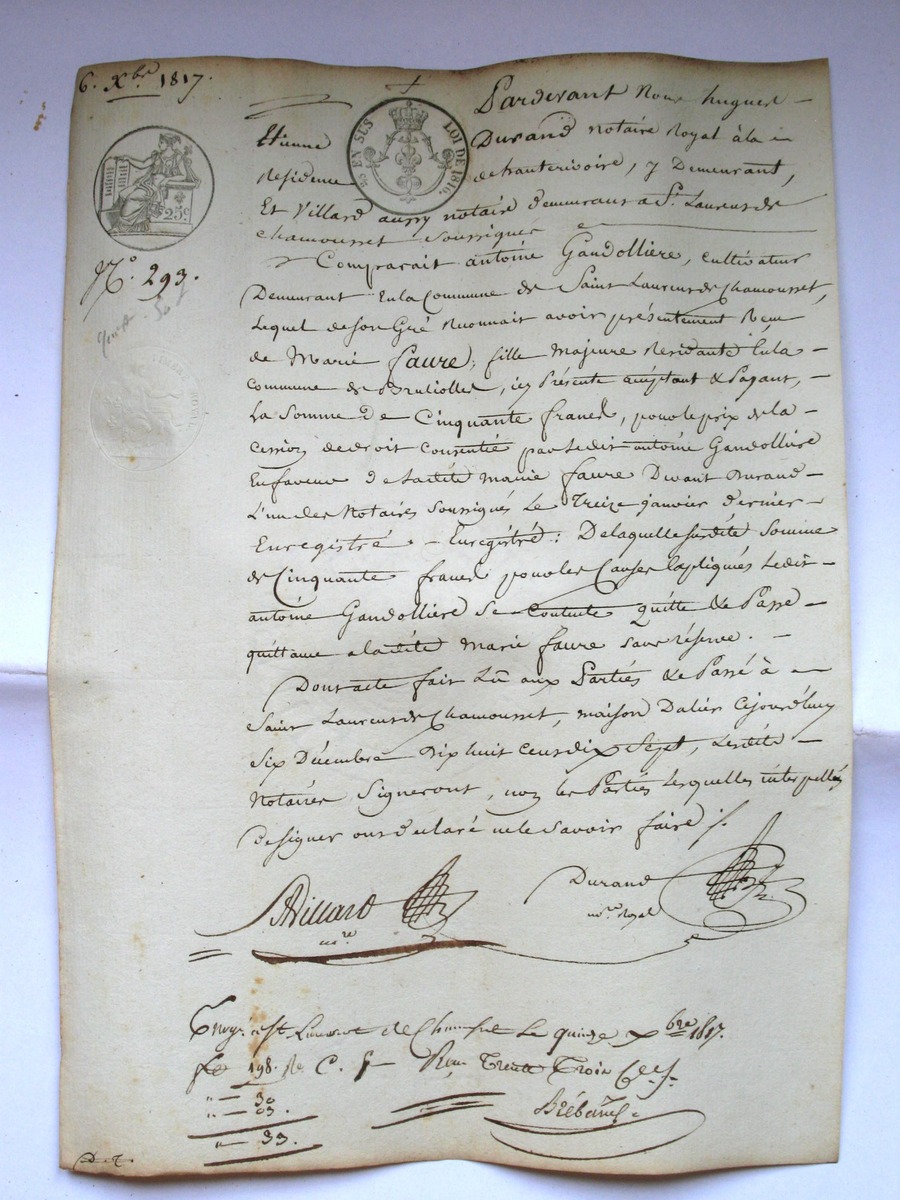 6. Xbre 1817.
25 EN SUS LOI DE 1816.
25c
No. 293.
Pardevant Nous hugues
Etienne Durand notaire Royal à la
Résidence de hauterivoire, y Demeurant,
Et Villard aussy notaire demeurant a St. Laurent de
chamousset soussignés
Comparait antoine Gandollière, cultivateur
Demeurant En la Commune de Saint Laurent de chamousset,
Lequel de son Gré Reconnait avoir présentement Reçu
de Marie faure, fille majeure Residante En la
commune de Brullioles, icy Présente acceptant & Payant,
La Somme de Cinquante francs, pour le prix de la
cession de droit Consentie par Ledit antoine Gandollière
En faveur de Ladite marie faure Devant Durand
L'un des Notaires Soussignés Le Treize janvier dernier
Enregistré. Enregistré: De laquelle susdite Somme
de Cinquante francs pour les Causes Expliquées Ledit
antoine Gandollière Se Contente Quitte & Passe
quittance a ladite marie faure sans réserve.
Dont acte fait Lu aux Parties & Passé à
Saint Laurent de Chamousset, maison Dalier Cejourd'huy
Six Décembre Dix huit Cent dix Sept, Lesdits
Notaires Signeront, non les Parties Lesquelles interpellées
de signer ont declaré ne le Savoir faire /.
Villard
nore
Durand
nore Royal
Enregé à St Laurent de Chamset Le quinze Xbre 1817.
fo 198. Ro C. 5 Reçu Trente Trois Ces.
" — 30
" — 03.
" — 33.
D. r.